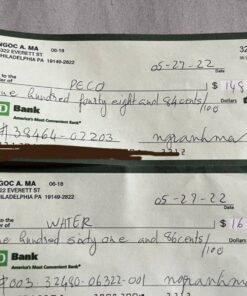 NGOC A. MA 06-18 32
322 EVERETT ST
PHILADELPHIA PA 19149-2822
05-27-22
Date
to the
of
PECO $ 148
one hundred fourty eight and 84 cents/100 Dollars
D Bank
America's Most Convenient Bank®
# 38464-02203
GOC A. MA 06-18
22 EVERETT ST
PHILADELPHIA PA 19149-2822
05-27-22
Date
to the
of
WATER $ 16
one hundred sixty one and 86 cents/100 Dollars
D Bank
America's Most Convenient Bank®
#003 32480-06322-001